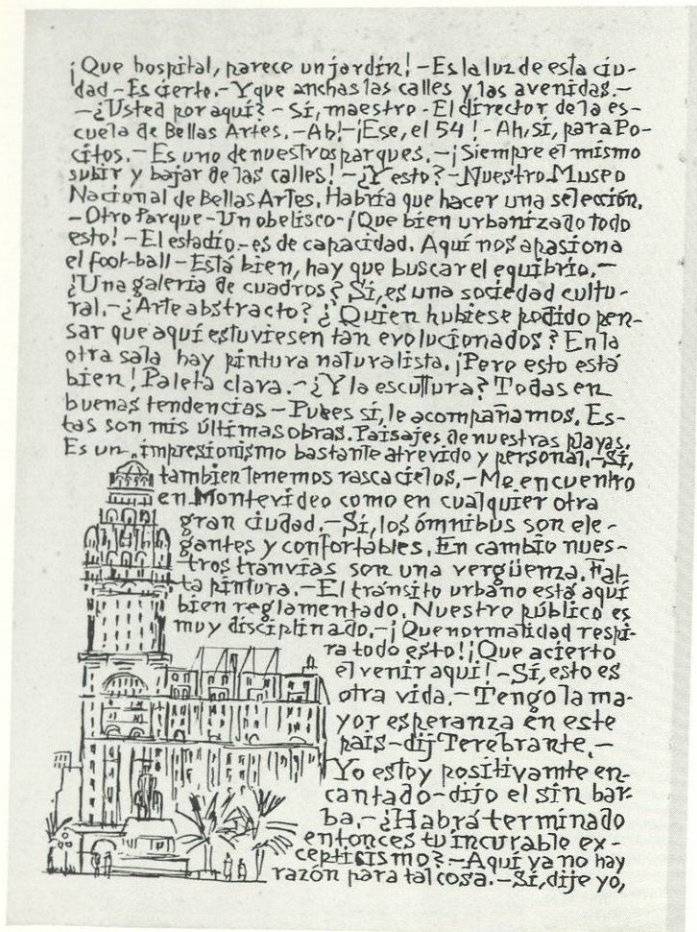 ¡Que hospital, parece un jardín!-Es la luz de esta ciu-
dad-Es cierto.-Y que anchas las calles y las avenidas.-
-¿Usted por aquí?-Sí, maestro-El director de la es-
cuela de Bellas Artes.-Ah!-¡Ese, el 54!-Ah, sí, para Po-
citos.-Es uno de nuestros parques.-¡Siempre el mismo
subir y bajar de las calles!-¿Y esto?-Nuestro Museo
Nacional de Bellas Artes. Habría que hacer una selección.
-Otro Parque-Un obelisco-¡Que bien urbanizado todo
esto!-El estadio.-es de capacidad. Aquí nos apasiona
el foot-ball-Está bien, hay que buscar el equibrio.-
¿Una galería de cuadros? Sí, es una sociedad cultu-
ral.-¿Arte abstracto? ¿Quien hubiese podido pen-
sar que aquí estuviesen tan evolucionados? En la
otra sala hay pintura naturalista. ¡Pero esto está
bien! Paleta clara.-¿Y la escultura? Todas en
buenas tendencias-Pues sí, le acompañamos. Es-
tas son mis últimas obras. Paisajes de nuestras playas.
Es un impresionismo bastante atrevido y personal.-Sí,
tambien tenemos rascacielos.-Me encuentro
en Montevideo como en cualquier otra
gran ciudad.-Sí, los ómnibus son ele-
gantes y confortables. En cambio nues-
tros tranvías son una vergüenza. Fal-
ta pintura.-El tránsito urbano está aquí
bien reglamentado. Nuestro público es
muy disciplinado.-¡Que normalidad respi-
ra todo esto!¡Que acierto
el venir aquí!-Sí, esto es
otra vida.-Tengo la ma-
yor esperanza en este
país-dij Terebrante.-
Yo estoy positivamte en-
cantado-dijo el sin bar-
ba.-¿Habrá terminado
entonces tu incurable ex-
cepticismo?-Aquí ya no hay
razón para tal cosa.-Sí, dije yo,